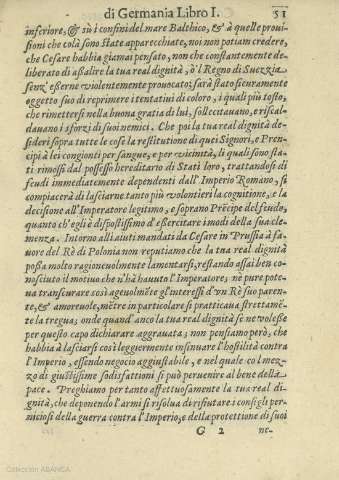 di Germania Libro I. 51
inferiore, & sù i confini del mare Balthico, & à quelle proui-
sioni che colà sono state apparecchiate, noi non potiam credere,
che Cesare habbia giamai pensato, non che constantemente de-
liberato di aßalire la tua real dignità, ò l Regno di Suezzia
senz' eßerne violentemente prouocato; sarà stato sicuramente
oggetto suo di reprimere i tentatiui di coloro, i quali più tosto,
che rimettersi nella buona gratia di lui, sollecitauano, e riscal-
dauano i sforzi di suoi nemici. Che poi la tua real dignità de-
sideri sopra tutte le cose la restitutione di quei Signori, e Pren-
cipi à lei congionti per sangue, e per vicinità, li quali sono sta-
ti rimossi dal possesso hereditario di Stati loro, trattandosi di
feudi immediatemente dependenti dall' Imperio Romano, si
compiacerà di lasciarne tanto più volontieri la cognitione, e la
decisione all'Imperatore legitimo, e soprano Prēcipe del feudo,
quanto ch'egli è dispostissimo d'essercitare i modi della sua cle-
menza. Intorno all'aiuti mandati da Cesare in Prussia à fa-
uore del Rè di Polonia non reputiamo che la tua real dignità
poßa molto ragioneuolmente lamentarsi, restando assai ben co-
nosciuto il motiuo che n'hà hauuto l'Imperatore; nè pure pote-
ua transcurare così ageuolmēte gl'interessi d'vn Rè suo paren-
te, & amoreuole, mētre in particolare si pratticaua strettamē-
te la tregua; onde quand' anco la tua real dignità se ne voleße
per questo capo dichiarare aggrauata; non pensiamo però, che
habbia à lasciarsi così leggiermente insinuare l'hostilità contra
l'Imperio, essendo negocio aggiustabile, e nel quale col mez-
zo di giustissime sodisfattioni si può peruenire al bene della
pace. Preghiamo per tanto affettuosamente la tua real di-
gnità, che deponendo l'armi si risolua di rifiutare i consigli per-
niciosi della guerra contra l'Imperio; e della protettione di suoi
G 2 ne-
Colección ABANCA